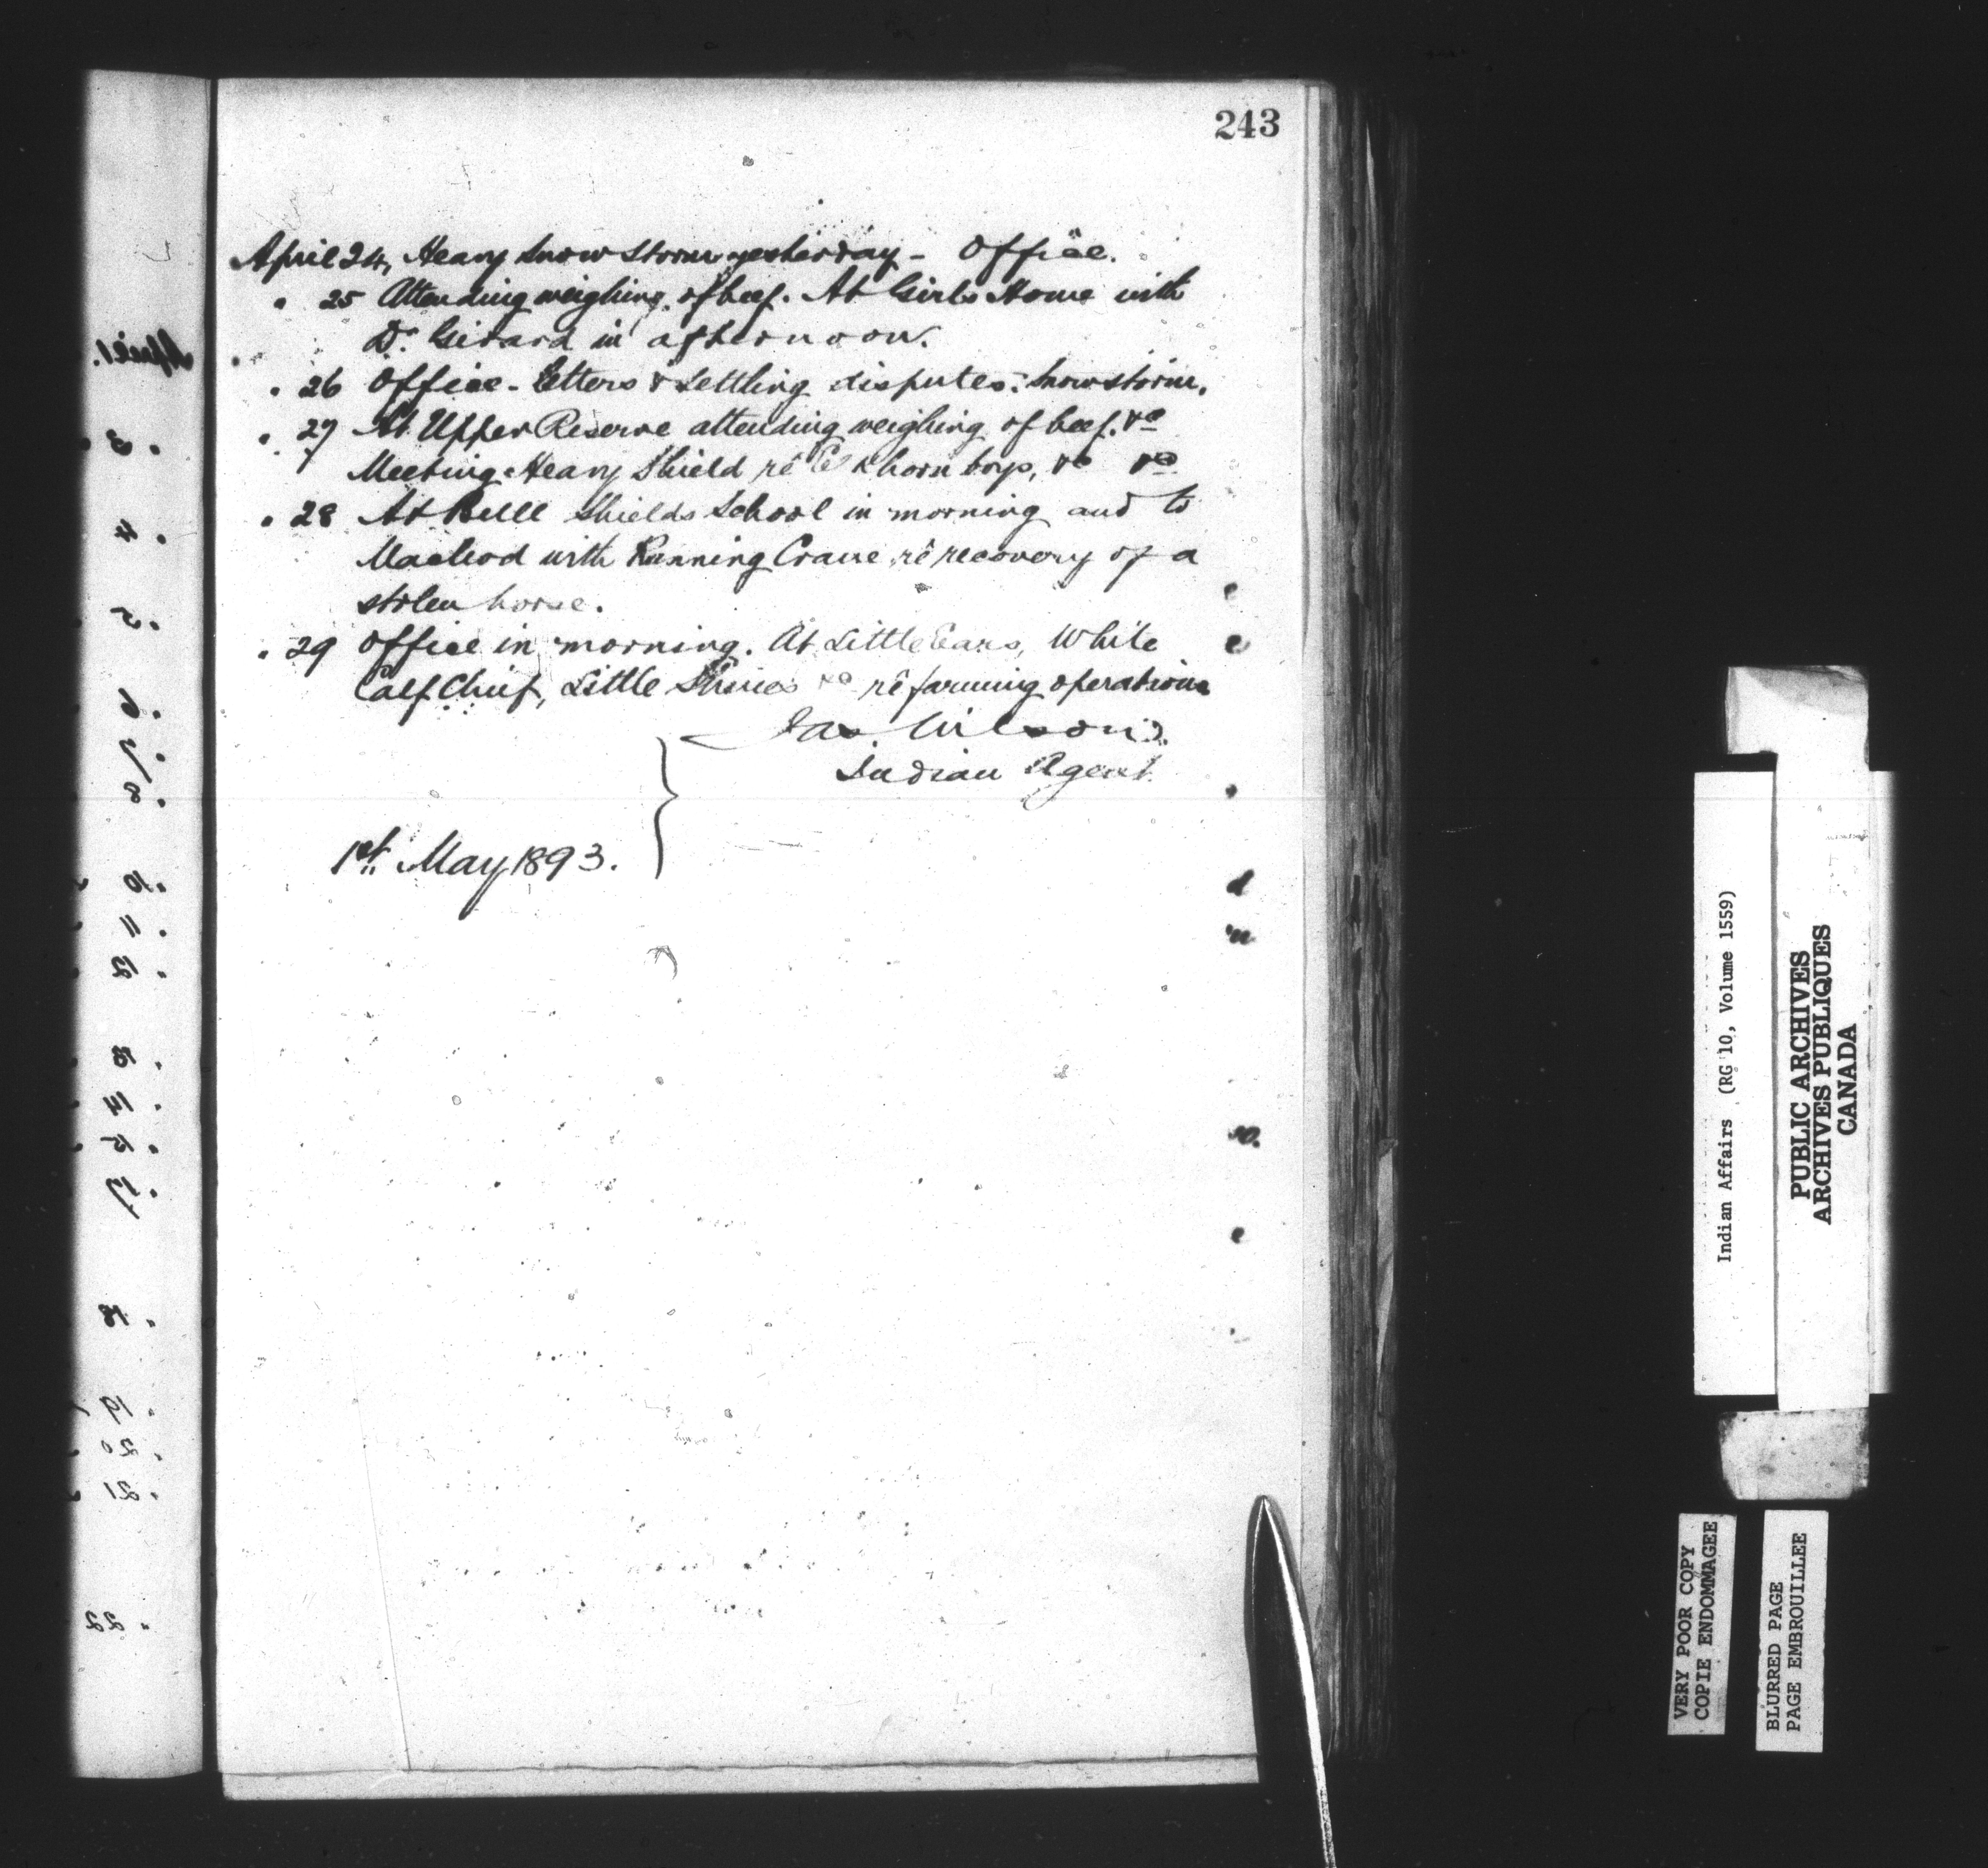 243
April 24, Heavy Snow Storm yesterday - Office.
" 25 Attending weighing of beef. At Girls Home with
Dr. Girard in afternoon.
" 26 Office - Letters & Settling disputes. Snowstorm.
" 27 At Upper Reserve attending weighing of beef. &c
Meeting Heavy Shield rê horn boys, &c &c
" 28 At Bull Shields School in morning and to
Macleod with Running Crane rê recovery of a
stolen horse.
" 29 Office in morning. At Little Ears, White
Calf Chief, Little &c rê farming operations
Jas. Wilson
Indian Agent.
1st May 1893.
Indian Affairs (RG 10, Volume 1559)
PUBLIC ARCHIVES
ARCHIVES PUBLIQUES
CANADA
VERY POOR COPY
COPIE ENDOMMAGEE
BLURRED PAGE
PAGE EMBROUILLEE